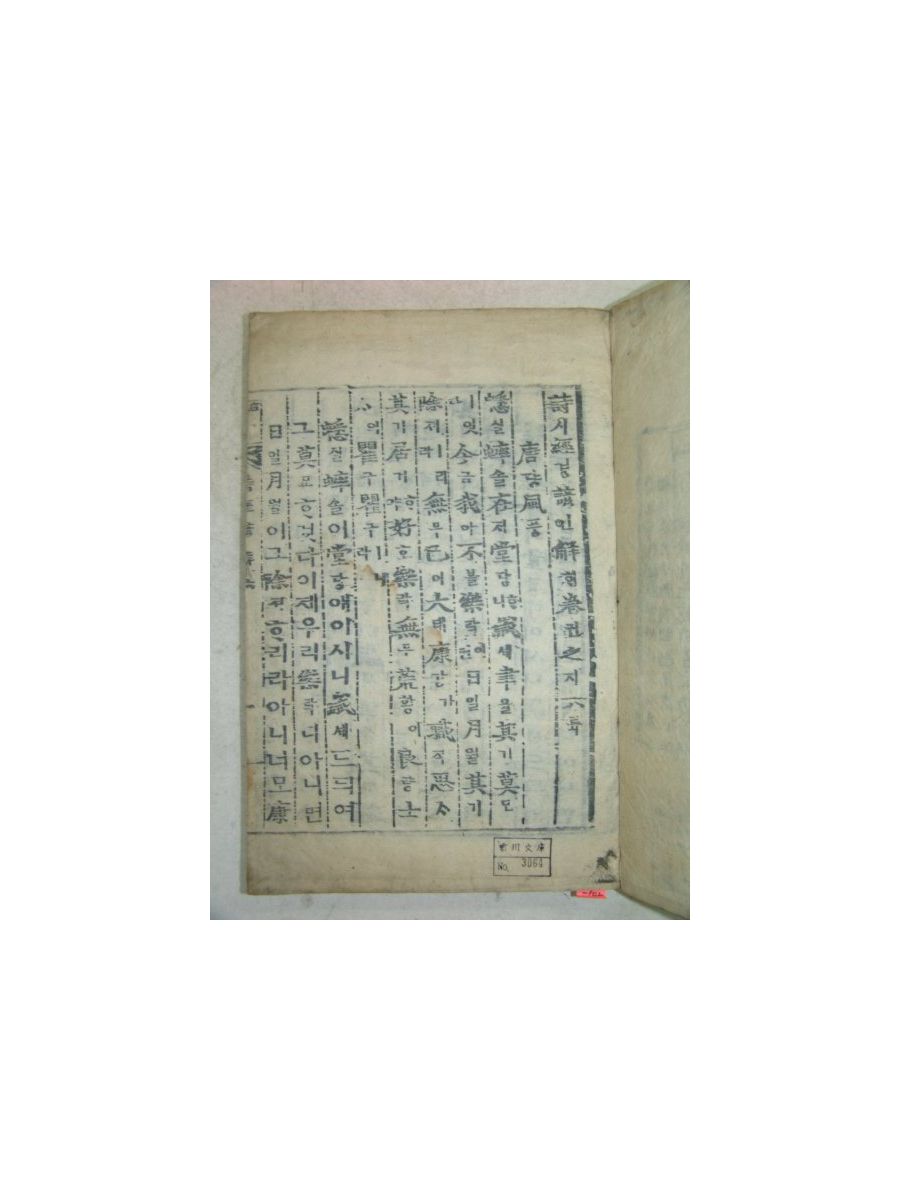 詩시經경諺언解ᄒᆡ卷권之지六륙
唐당風풍
蟋실蟀솔在ᄌᆡ堂당ᄒᆞ니歲셰聿율其기莫모
ㅣ엇다今금我아不블樂락이면日일月월其기
除뎨리라無무已이大태康강가職직思ᄉᆞ
其기居거ᄒᆞ야好호樂락無무荒황이良량士
ᄉᆞ의瞿구瞿구ㅣ니라
蟋실蟀솔이堂당애이시니歲셰ㅣ드듸여
그莫모ᄒᆞ엿다이제우리樂락디아니면
日일月월이그除뎨ᄒᆞ리라아니너모康
文庫
No. 3064